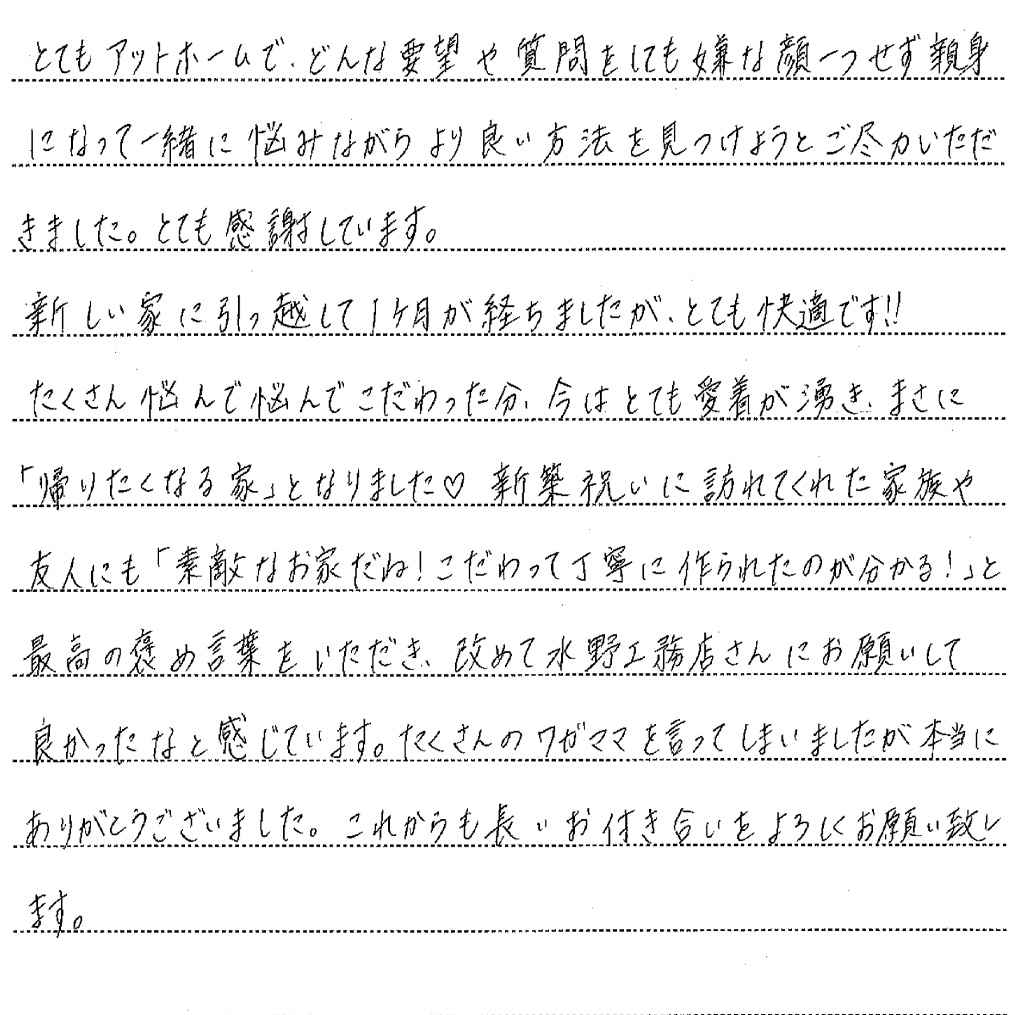 とてもアットホームで、どんな要望や質問をしても嫌な顔一つせず親身
になって一緒に悩みながらより良い方法を見つけようとご尽力いただ
きました。とても感謝しています。
新しい家に引っ越して1ケ月が経ちましたが、とても快適です!!
たくさん悩んで悩んでこだわった分、今はとても愛着が湧き、まさに
「帰りたくなる家」となりました♡ 新築祝いに訪れてくれた家族や
友人にも「素敵なお家だね!こだわって丁寧に作られたのが分かる!」と
最高の褒め言葉をいただき、改めて水野工務店さんにお願いして
良かったなと感じています。たくさんのワガママを言ってしまいましたが本当に
ありがとうございました。これからも長いお付き合いをよろしくお願い致し
ます。